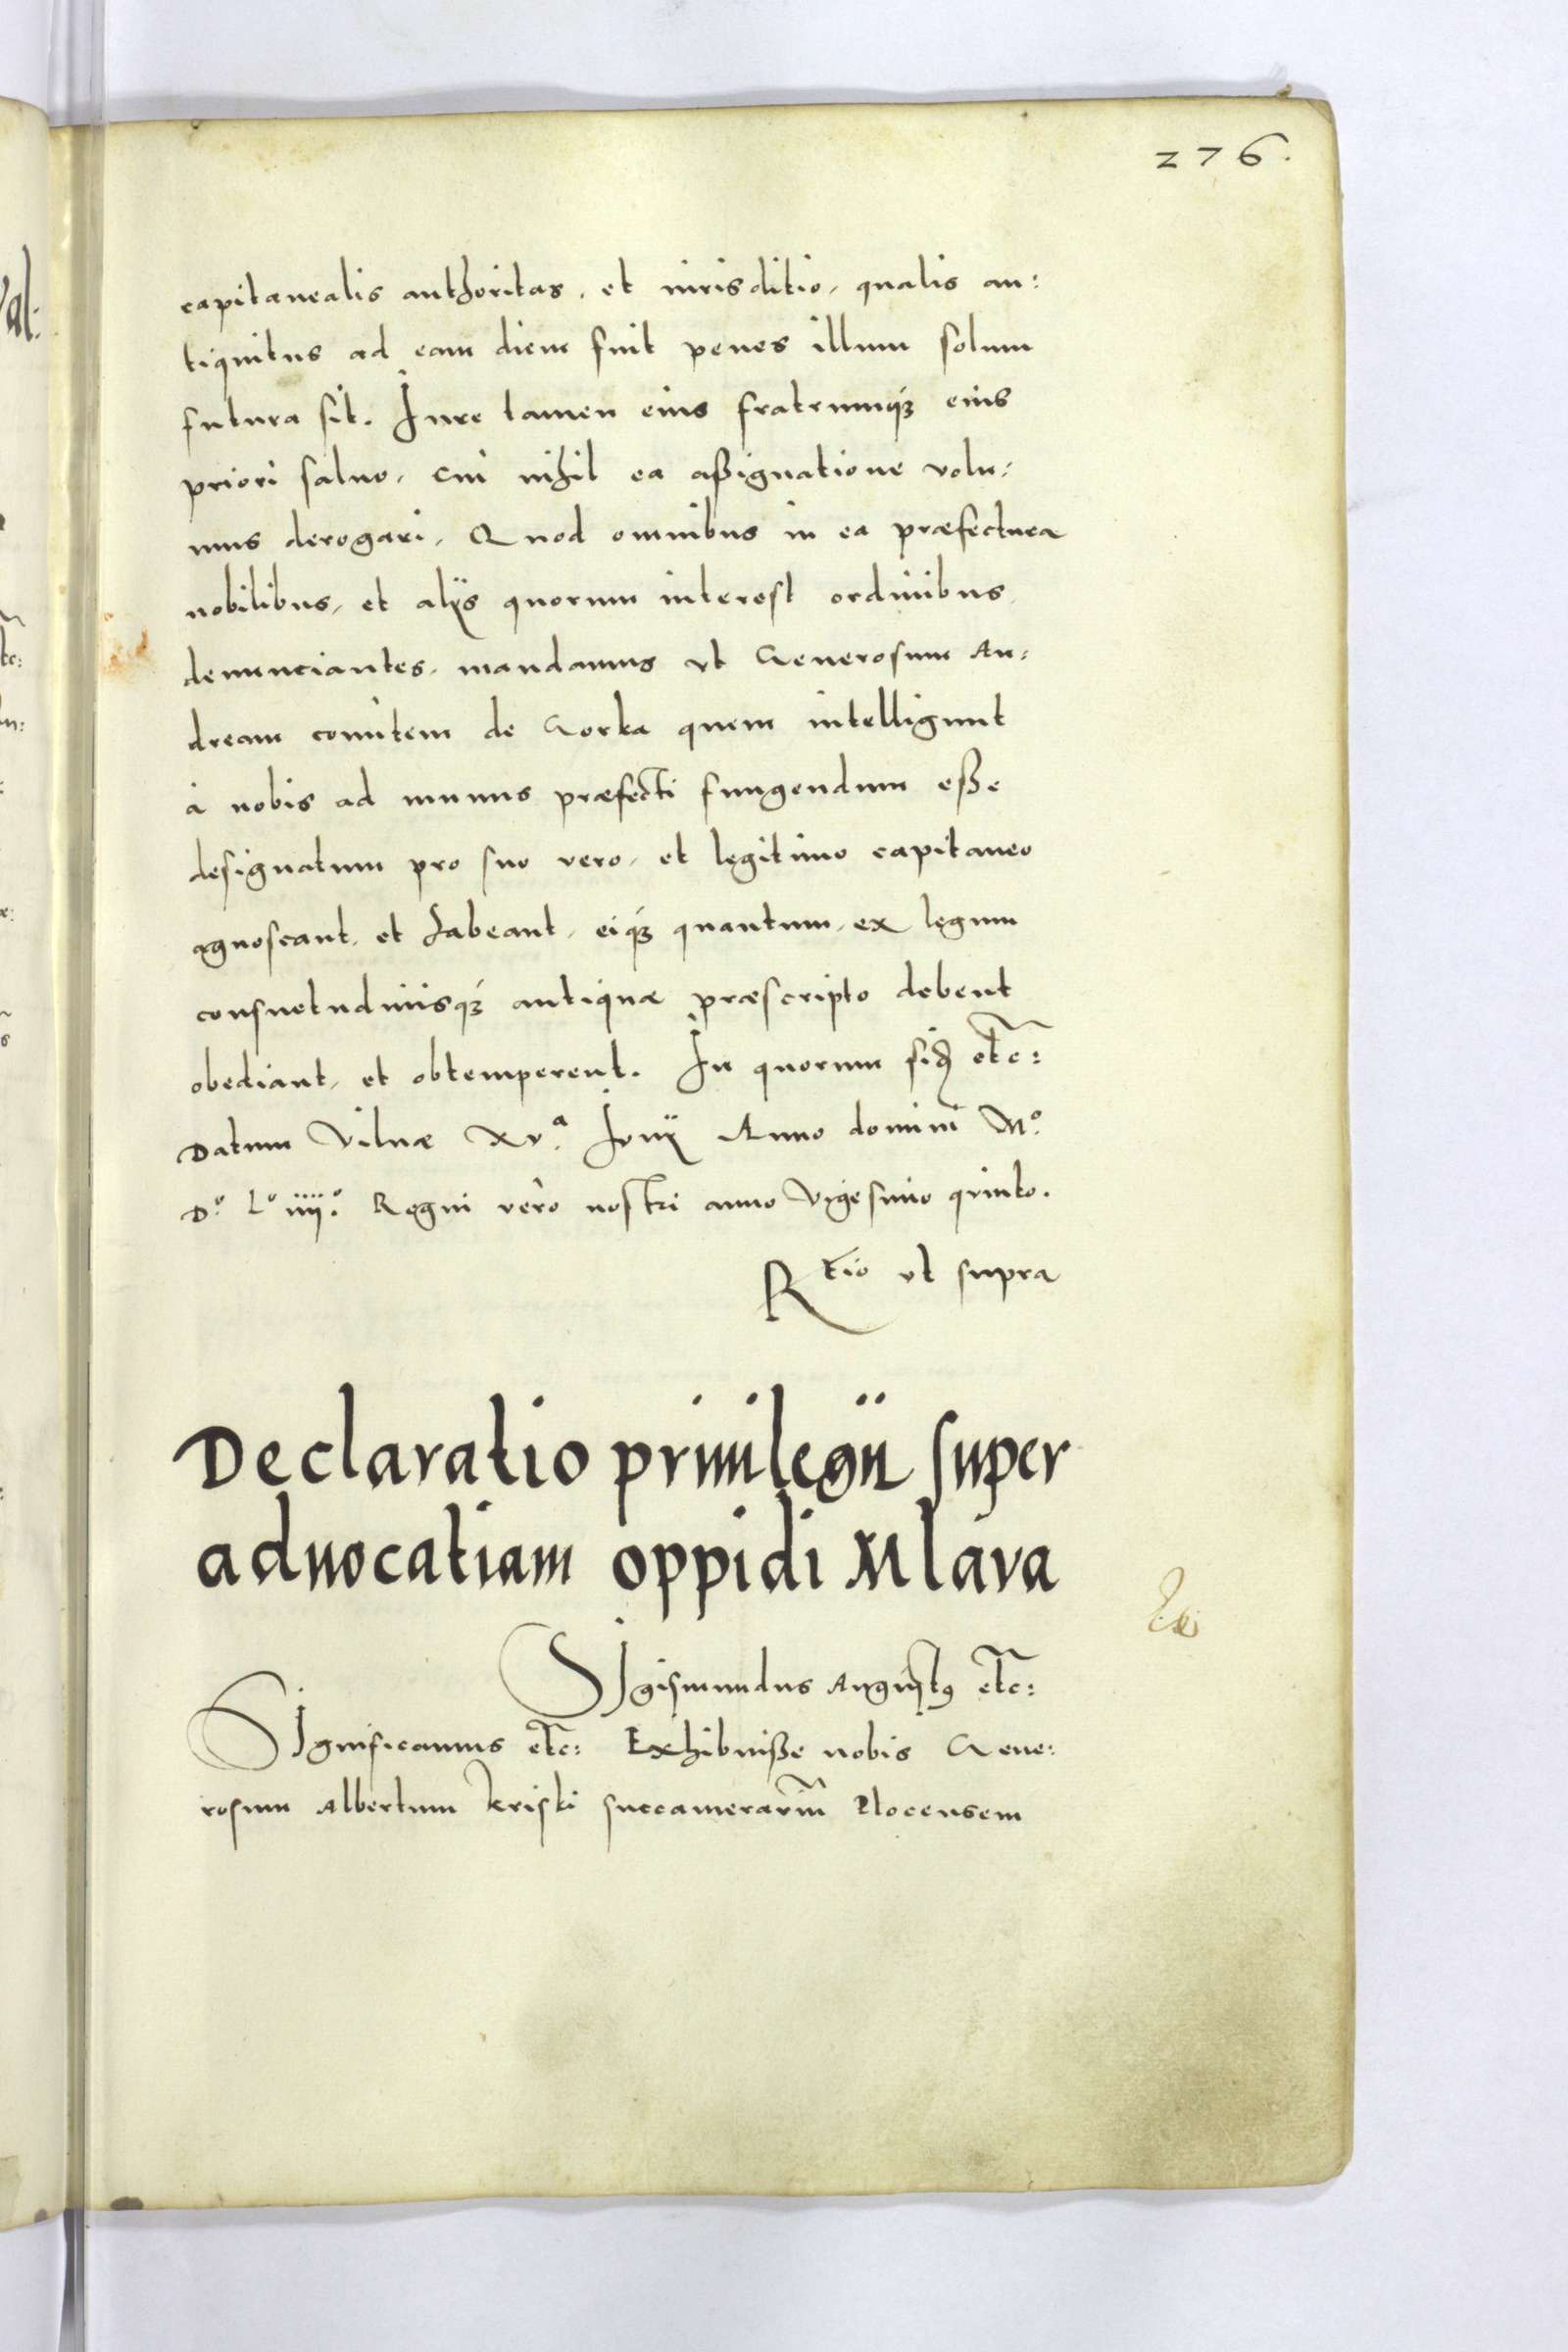 276.
capitanealis authoritas, et iurisditio, qualis an:
tiquitus ad eam diem fuit penes illum solum
futura sit. Iure tamen eius fratrumq&#x301;ꝫ eius
priori saluo, cui nihil ea aßignatione volu:
mus derogari, Quod omnibus in ea præfectura
nobilibus, et alijs quorum interest ordinibus
denunciantes, mandamus vt Generosum An:
dream comitem de Gorka quem intelligunt
à nobis ad munus præfecti fungendum eße
designatum pro suo vero, et legitimo capitaneo
agnoscant, et habeant, eiqꝫ quantum, ex legum
consuetudinisqꝫ antiquæ præscripto debent
obediant, et obtemperent. In quorum etc:
Datum Vilnæ xv.ª Iunij Anno domini M.º
D.º L.º iiij.º Regni vero nostri anno vigesimo quinto.
Rtio vt supra
Declaratio priuilegii super
aduocatiam oppidi Mlava
Sigismundus Augustꝰ etc:
Significamus etc: Exhibuiße nobis Gene:
rosum Albertum kriski succamerariũ Plocensem